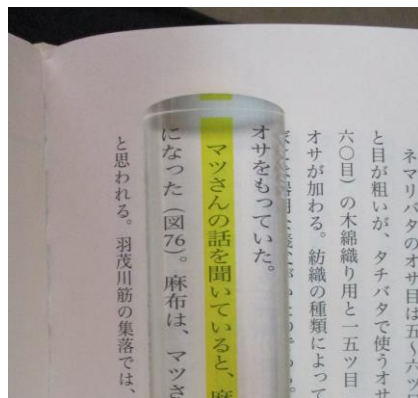 ネマリバタのオサ目は五〜六ツ
と目が粗いが、タチバタで使うオサ
六〇目）の木綿織り用と一五ツ目
オサが加わる。紡織の種類によって
オサをもっていた。
マツさんの話を聞いていると、麻
になった（図76）。麻布は、マツさ
と思われる。羽茂川筋の集落では、